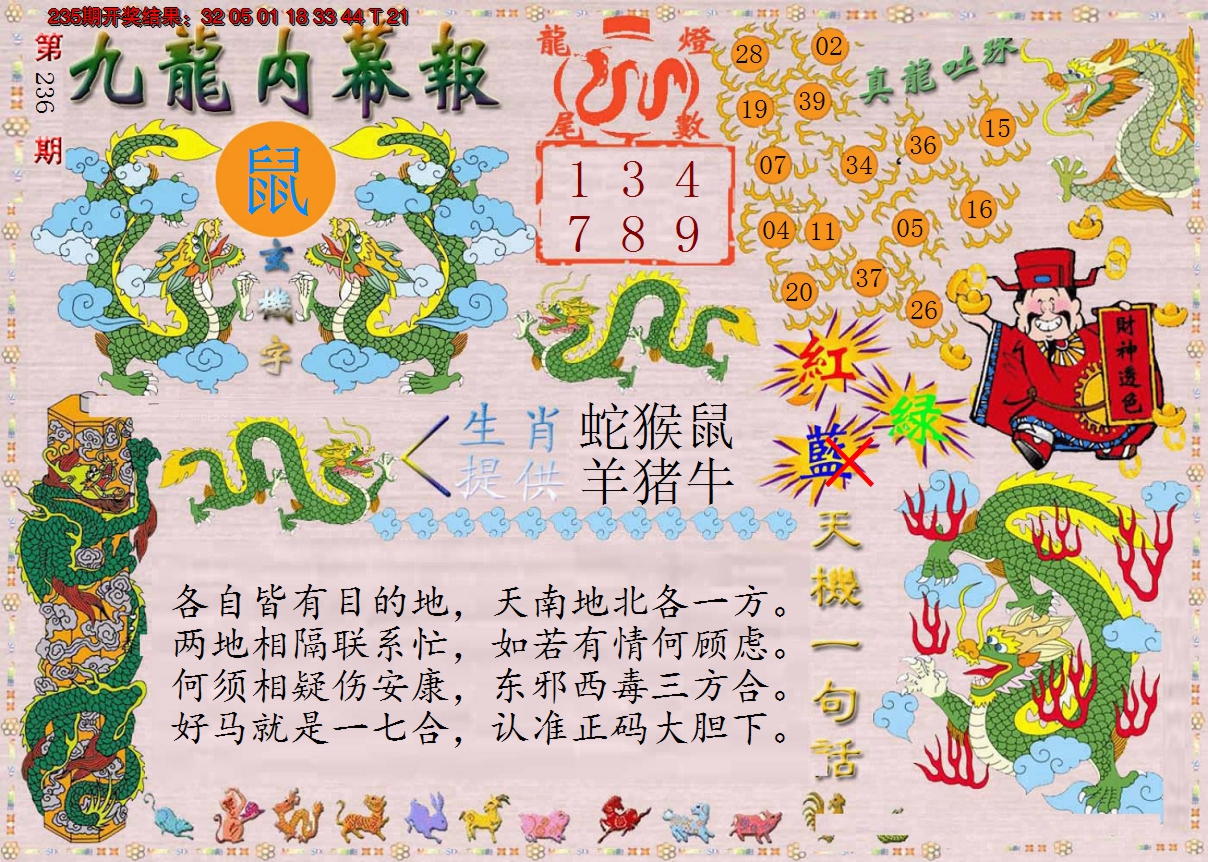 235期开奖结果：32 05 01 18 33 44 T 21
第236期
九龍内幕報
鼠
玄機字
龍燈
尾數
1 3 4
7 8 9
真龍吐珠
28
02
19
39
15
36
07
34
16
04
11
05
37
20
26
財神透色
紅
綠
藍
生肖 蛇猴鼠
提供 羊猪牛
各自皆有目的地，天南地北各一方。
两地相隔联系忙，如若有情何顾虑。
何须相疑伤安康，东邪西毒三方合。
好马就是一七合，认准正码大胆下。
天機一句話